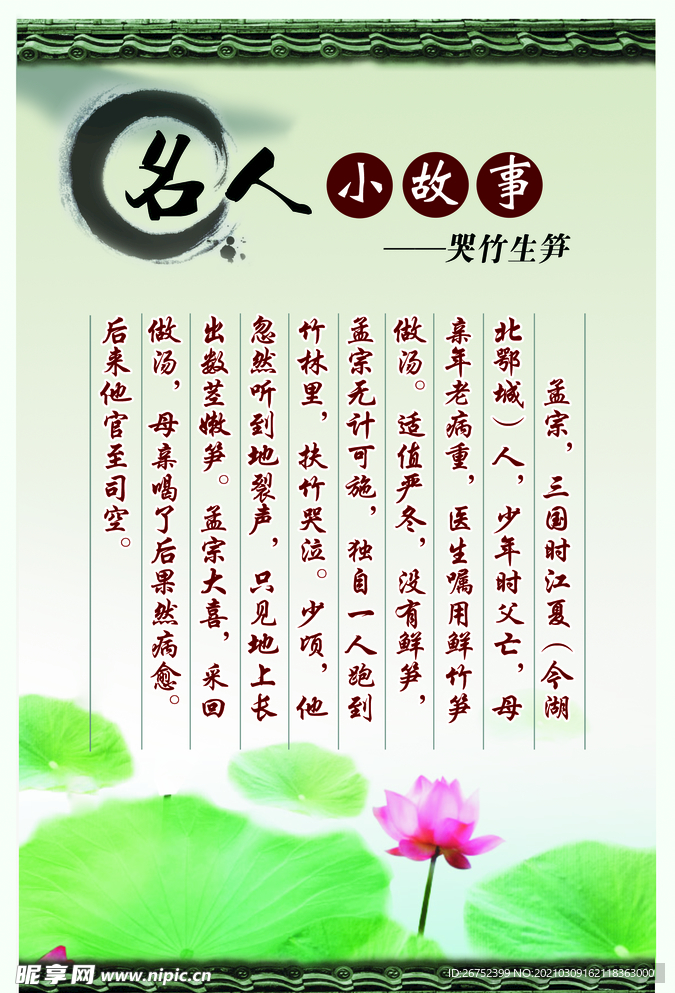 名人小故事
——哭竹生笋
孟宗，三国时江夏（今湖
北鄂城）人，少年时父亡，母
亲年老病重，医生嘱用鲜竹笋
做汤。适值严冬，没有鲜笋，
孟宗无计可施，独自一人跑到
竹林里，扶竹哭泣。少顷，他
忽然听到地裂声，只见地上长
出数茎嫩笋。孟宗大喜，采回
做汤，母亲喝了后果然病愈。
后来他官至司空。
昵享网 www.nipic.cn
ID:26752399 NO:20210309162118363000